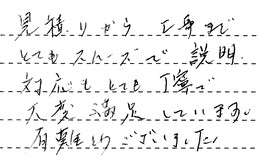 見積りから工事まで
とてもスムーズで説明
対応もとても丁寧で
大変満足しています。
有難とうございました